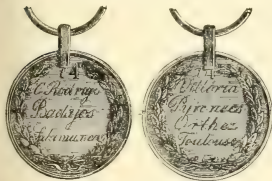 74
C Rodrigo
Badajos
Salamanca
74
Vittoria
Pyrenees
Orthes
Toulouse